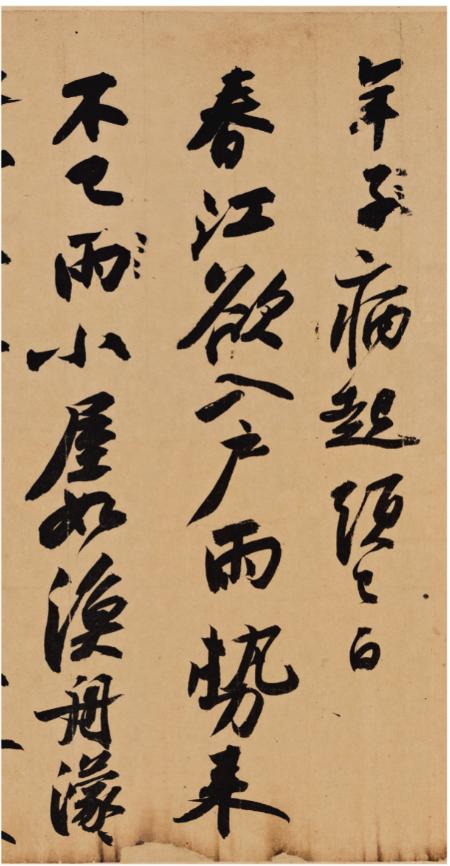 年子病起頭已白
春江欲入戶雨勢來
不已雨小屋如漁舟濛